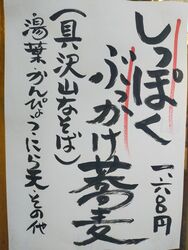 しっぽく
ぶっかけ蕎麦
一、六八〇円
（具沢山なそば）
湯葉・かんぴょう・にら天・その他